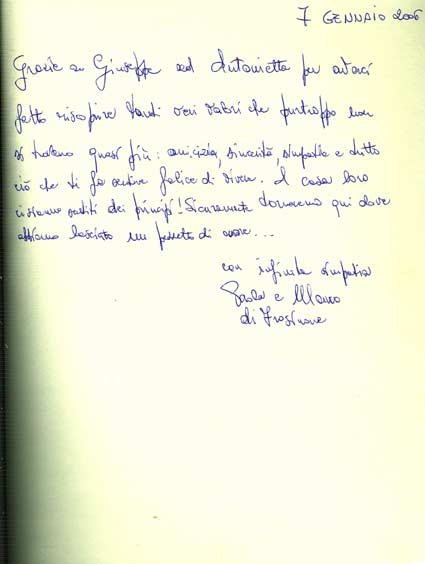 7 GENNAIO 2006
Grazie a Giuseppe ed Antonietta per averci
fatto riscoprire tanti veri valori che purtroppo non
si trovano quasi più: amicizia, sincerità, simpatia e tutto
ciò che ti fa sentire felice di vivere. A casa loro
ci siamo sentiti dei principi! Sicuramente torneremo qui dove
abbiamo lasciato un pezzetto di cuore...
con infinita simpatia
Paola e Marco
di Frosinone